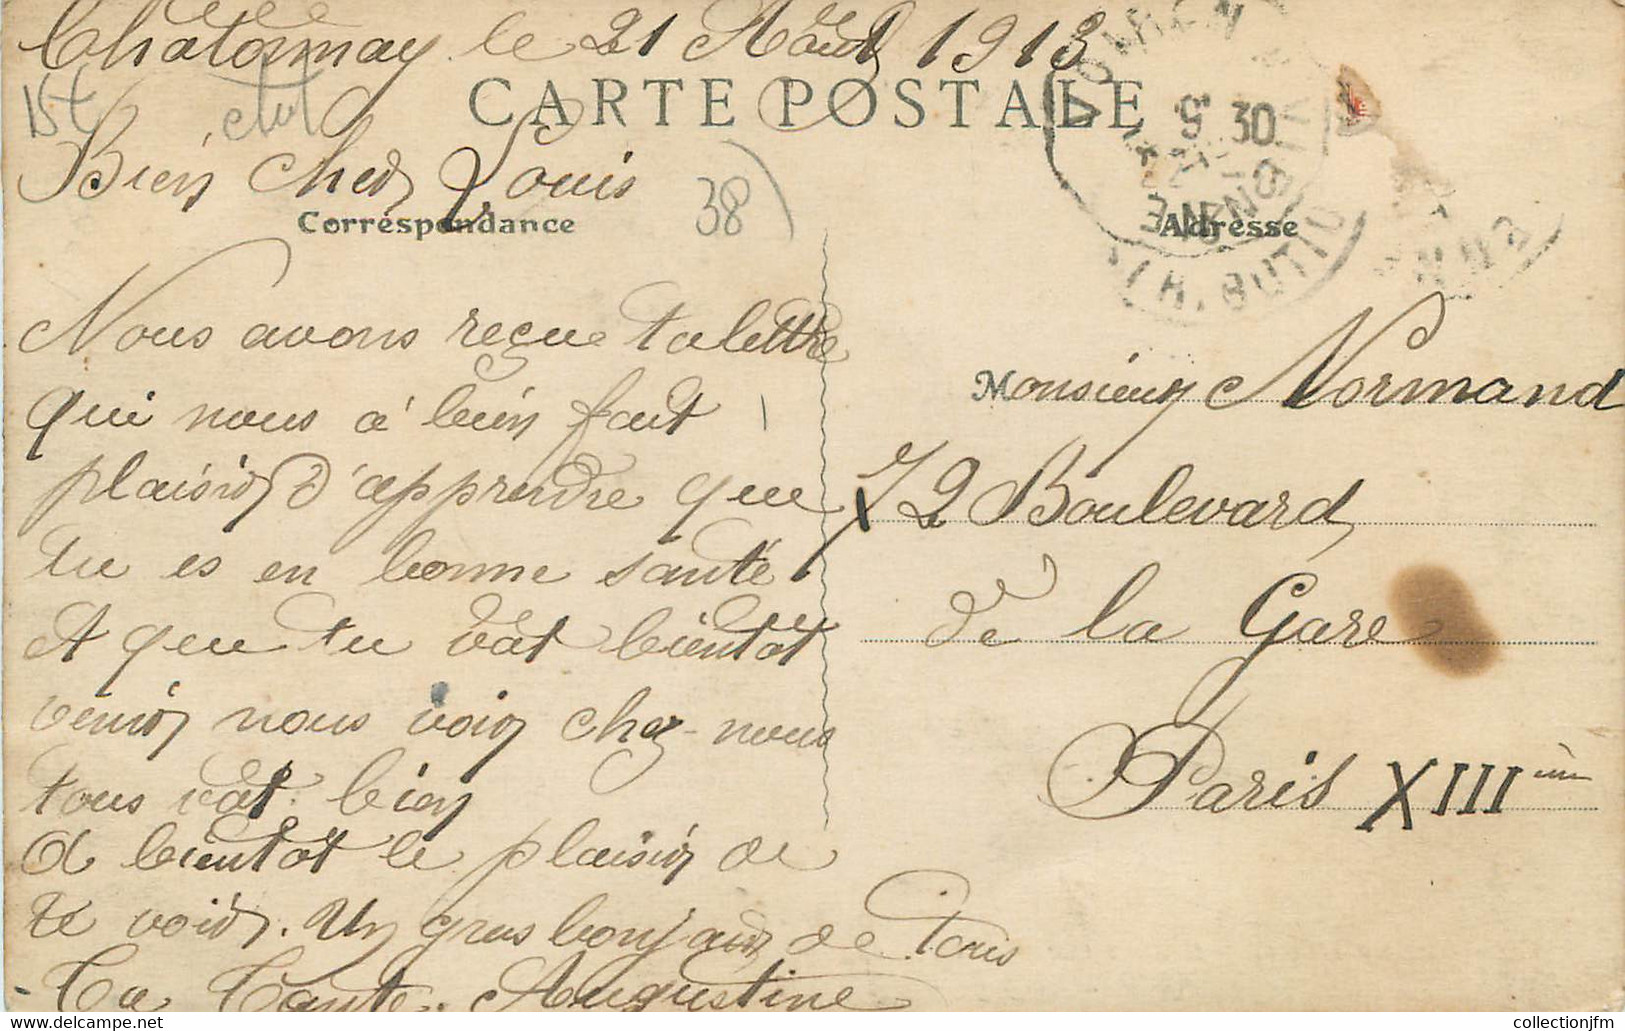 Chatonnay le 21 Août 1913
CARTE POSTALE
Bien cher Louis
38
Correspondance
Adresse
9 30
Nous avons reçue ta lettre
qui nous à bien fait
plaisir d'apprendre que
tu es en bonne santé
et que tu vat bientot
venir nous voir chez nous
tous vat bien
a bientot le plaisir de
te voir. Un gros bonjour de tous
Ta Tante. Augustine
Monsieur Normand
72 Boulevard
de la Gare
Paris XIIIème
collectionjfm